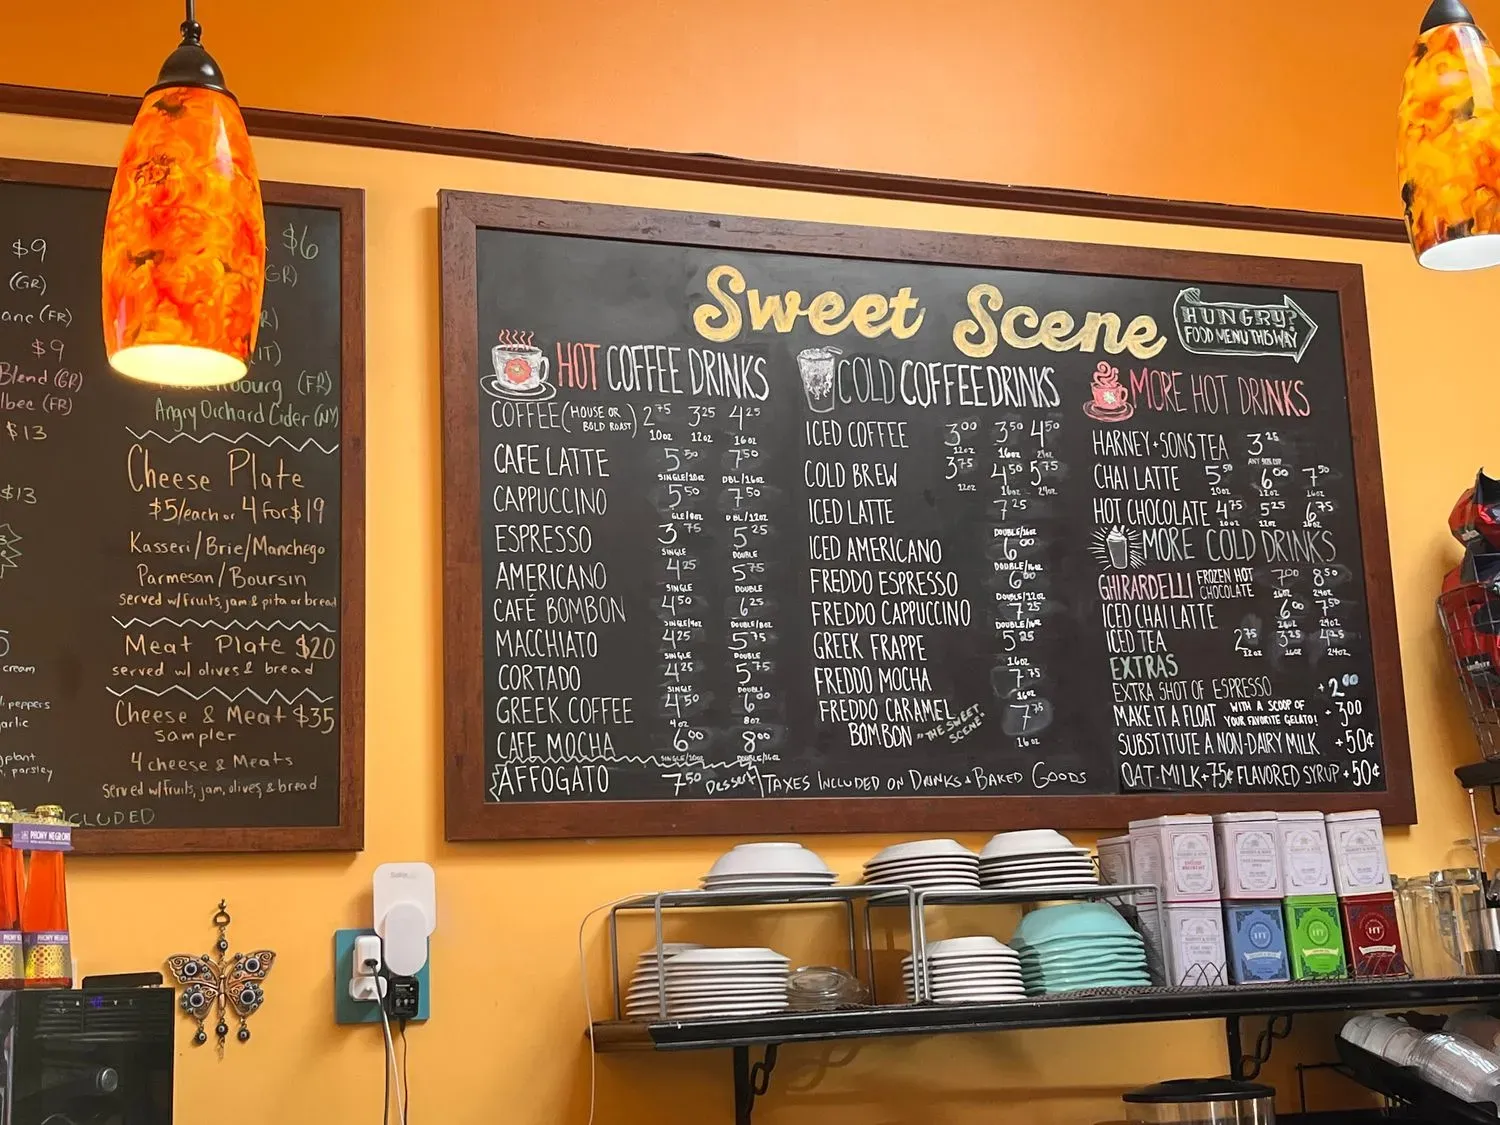 $9
(GR)
anc (FR)
$9
Blend (GR)
lbec (FR)
$13
$13
cream
peppers
garlic
parsley
$6
GR)
(FR)
Angry Orchard Cider (NY)
Cheese Plate
$5/each or 4 for $19
Kasseri/Brie/Manchego
Parmesan/Boursin
served w/fruits, jam & pita or bread
Meat Plate $20
served w/ olives & bread
Cheese & Meat $35
sampler
4 cheese & Meats
served w/fruits, jam, olives, & bread
CLUDED
Sweet Scene
HUNGRY?
FOOD MENU THIS WAY
HOT COFFEE DRINKS
COFFEE (HOUSE OR BOLD ROAST) 2.75 3.25 4.25
10oz 12oz 16oz
CAFE LATTE 5.50 7.50
SINGLE/10oz DBL/16oz
CAPPUCCINO 5.50 7.50
GLE/8oz DBL/12oz
ESPRESSO 3.75 5.25
SINGLE DOUBLE
AMERICANO 4.25 5.75
SINGLE DOUBLE
CAFÉ BOMBON 4.50 6.25
SINGLE/4oz DOUBLE/8oz
MACCHIATO 4.25 5.75
SINGLE DOUBLE
CORTADO 4.25 5.75
SINGLE DOUBLE
GREEK COFFEE 4.50 6.00
4oz 8oz
CAFE MOCHA 6.00 8.00
SINGLE/10oz DOUBLE/16oz
AFFOGATO 7.50 Dessert
COLD COFFEE DRINKS
ICED COFFEE 3.00 3.50 4.50
12oz 16oz 24oz
COLD BREW 3.75 4.50 5.75
12oz 16oz 24oz
ICED LATTE 7.25
DOUBLE/16oz
ICED AMERICANO 6.00
DOUBLE/16oz
FREDDO ESPRESSO 6.00
DOUBLE/12oz
FREDDO CAPPUCCINO 7.25
DOUBLE/16oz
GREEK FRAPPE 5.25
16oz
FREDDO MOCHA 7.75
16oz
FREDDO CARAMEL
BOMBON "THE SWEET SCENE" 7.75
16oz
TAXES INCLUDED ON DRINKS & BAKED GOODS
MORE HOT DRINKS
HARNEY + SONS TEA 3.25
ANY SIZE CUP
CHAI LATTE 5.50 6.00 7.50
10oz 12oz 16oz
HOT CHOCOLATE 4.75 5.25 6.75
10oz 12oz 16oz
MORE COLD DRINKS
GHIRARDELLI FROZEN HOT CHOCOLATE 7.00 8.50
16oz 24oz
ICED CHAI LATTE 6.00 7.50
16oz 24oz
ICED TEA 2.75 3.25 4.25
12oz 16oz 24oz
EXTRAS
EXTRA SHOT OF ESPRESSO +2.00
MAKE IT A FLOAT WITH A SCOOP OF YOUR FAVORITE GELATO! +3.00
SUBSTITUTE A NON-DAIRY MILK +50¢
OAT-MILK +75¢ FLAVORED SYRUP +50¢
PHONY NEGRONI
HARNEY & SONS
HT
HT
HT